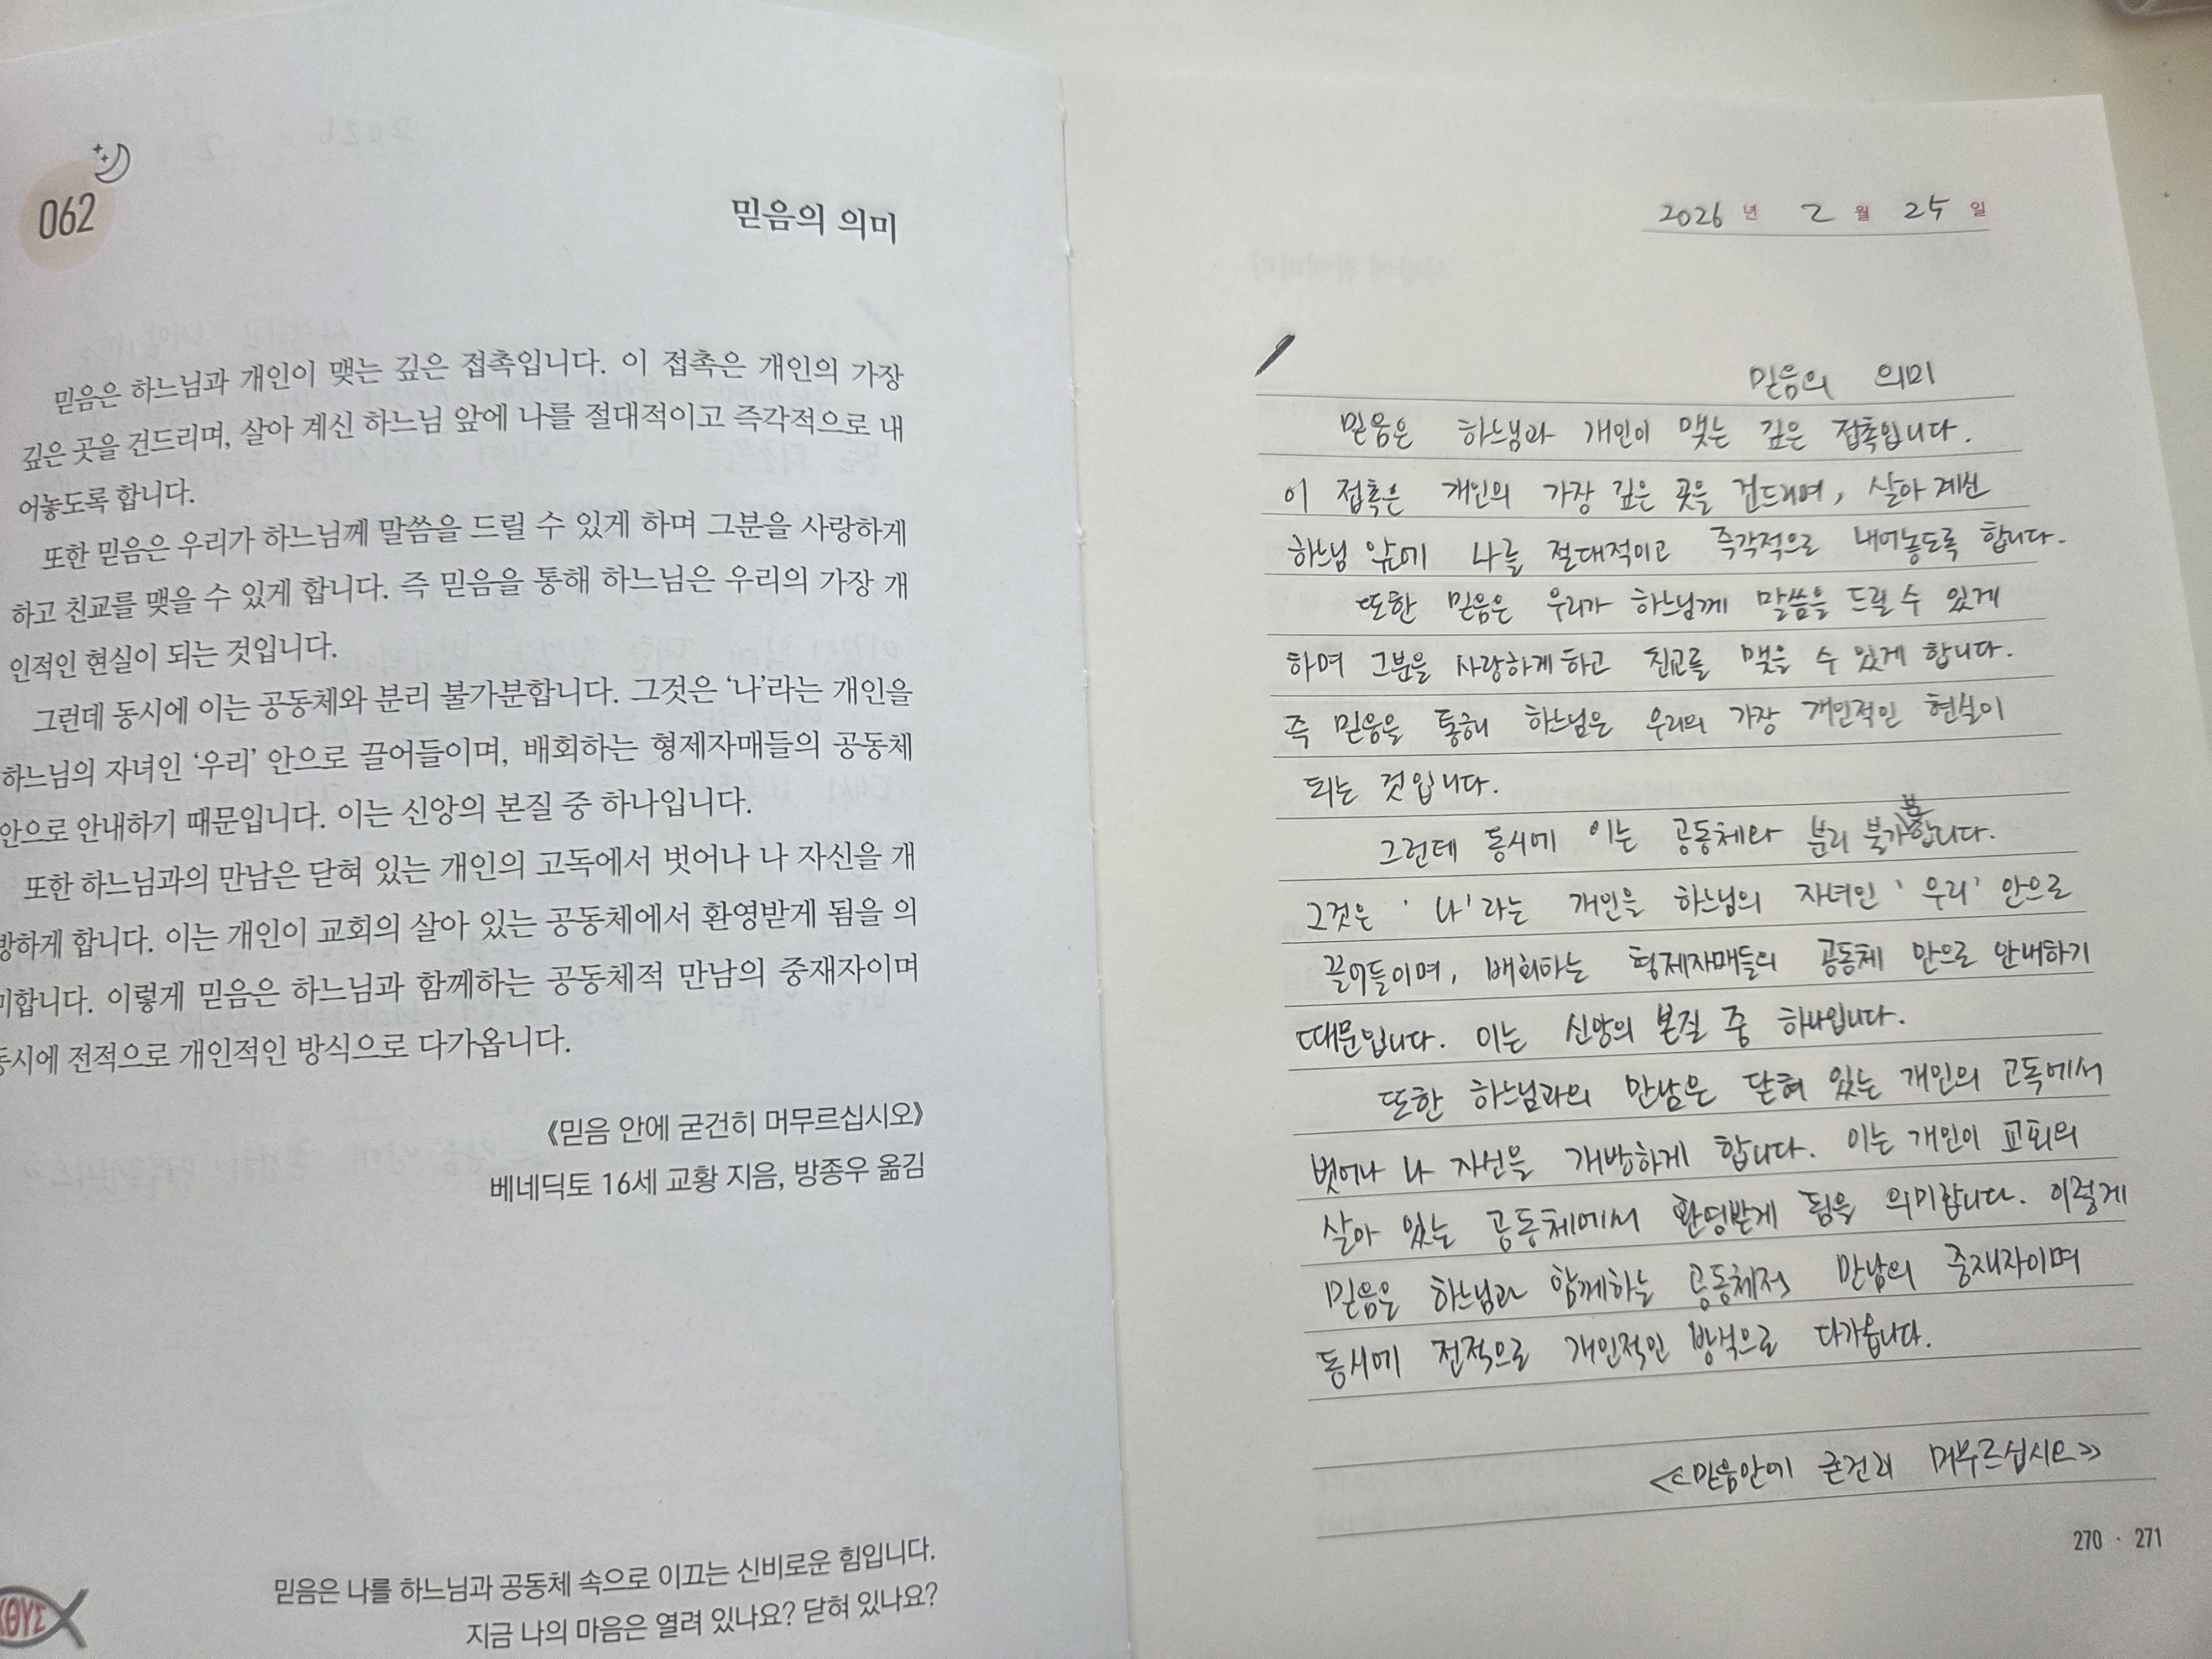 062
믿음의 의미
믿음은 하느님과 개인이 맺는 깊은 접촉입니다. 이 접촉은 개인의 가장
깊은 곳을 건드리며, 살아 계신 하느님 앞에 나를 절대적이고 즉각적으로 내
어놓도록 합니다.
또한 믿음은 우리가 하느님께 말씀을 드릴 수 있게 하며 그분을 사랑하게
하고 친교를 맺을 수 있게 합니다. 즉 믿음을 통해 하느님은 우리의 가장 개
인적인 현실이 되는 것입니다.
그런데 동시에 이는 공동체와 분리 불가분합니다. 그것은 ‘나’라는 개인을
하느님의 자녀인 ‘우리’ 안으로 끌어들이며, 배회하는 형제자매들의 공동체
안으로 안내하기 때문입니다. 이는 신앙의 본질 중 하나입니다.
또한 하느님과의 만남은 닫혀 있는 개인의 고독에서 벗어나 나 자신을 개
방하게 합니다. 이는 개인이 교회의 살아 있는 공동체에서 환영받게 됨을 의
미합니다. 이렇게 믿음은 하느님과 함께하는 공동체적 만남의 중재자이며
동시에 전적으로 개인적인 방식으로 다가옵니다.
《믿음 안에 굳건히 머무르십시오》
베네딕토 16세 교황 지음, 방종우 옮김
믿음은 나를 하느님과 공동체 속으로 이끄는 신비로운 힘입니다.
지금 나의 마음은 열려 있나요? 닫혀 있나요?
ΘΥΣ
2026 년 2 월 25 일
믿음의 의미
믿음은 하느님과 개인이 맺는 깊은 접촉입니다.
이 접촉은 개인의 가장 깊은 곳을 건드리며, 살아 계신
하느님 앞에 나를 절대적이고 즉각적으로 내어놓도록 합니다.
또한 믿음은 우리가 하느님께 말씀을 드릴 수 있게
하며 그분을 사랑하게 하고 친교를 맺을 수 있게 합니다.
즉 믿음을 통해 하느님은 우리의 가장 개인적인 현실이
되는 것입니다.
그런데 동시에 이는 공동체와 분리 불가분합니다.
그것은 '나'라는 개인을 하느님의 자녀인 '우리' 안으로
끌어들이며, 배회하는 형제자매들의 공동체 안으로 안내하기
때문입니다. 이는 신앙의 본질 중 하나입니다.
또한 하느님과의 만남은 닫혀 있는 개인의 고독에서
벗어나 나 자신을 개방하게 합니다. 이는 개인이 교회의
살아 있는 공동체에서 환영받게 됨을 의미합니다. 이렇게
믿음은 하느님과 함께하는 공동체적 만남의 중재자이며
동시에 전적으로 개인적인 방식으로 다가옵니다.
<<믿음안에 굳건히 머무르십시오>>
270 · 271